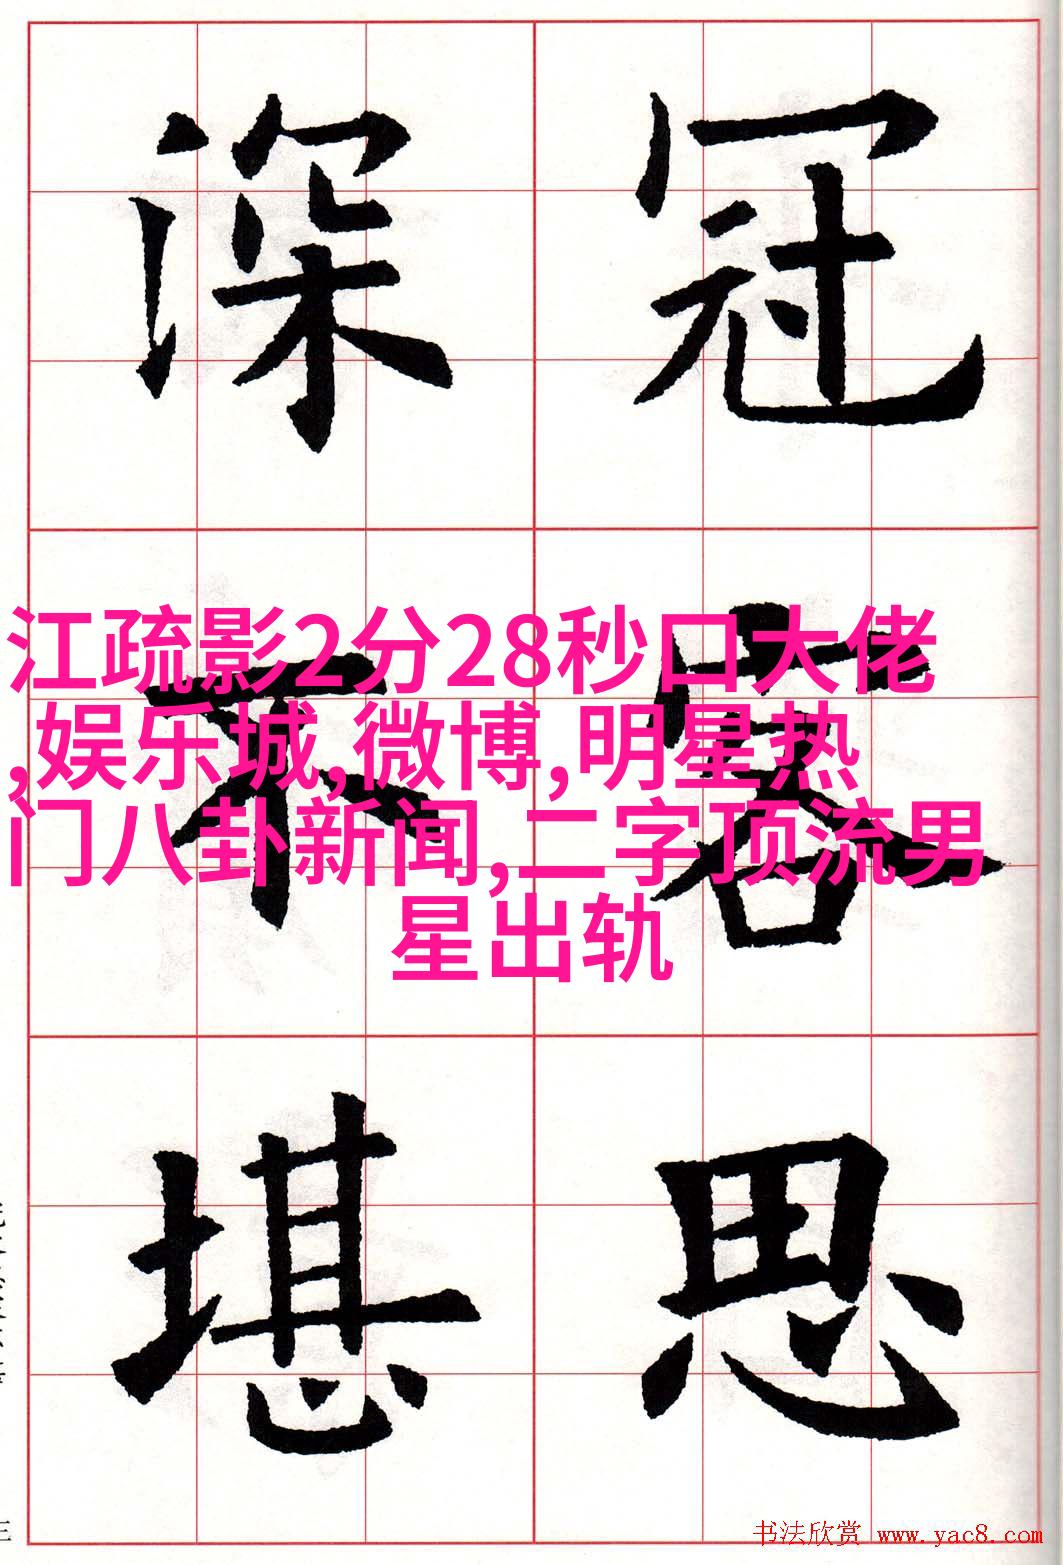 冠 深
容 不
思 堪
江疏影2分28秒口大佬
,娱乐城,微博,明星热
门八卦新闻,二字顶流男
星出轨
书法欣赏 www.yac8.com